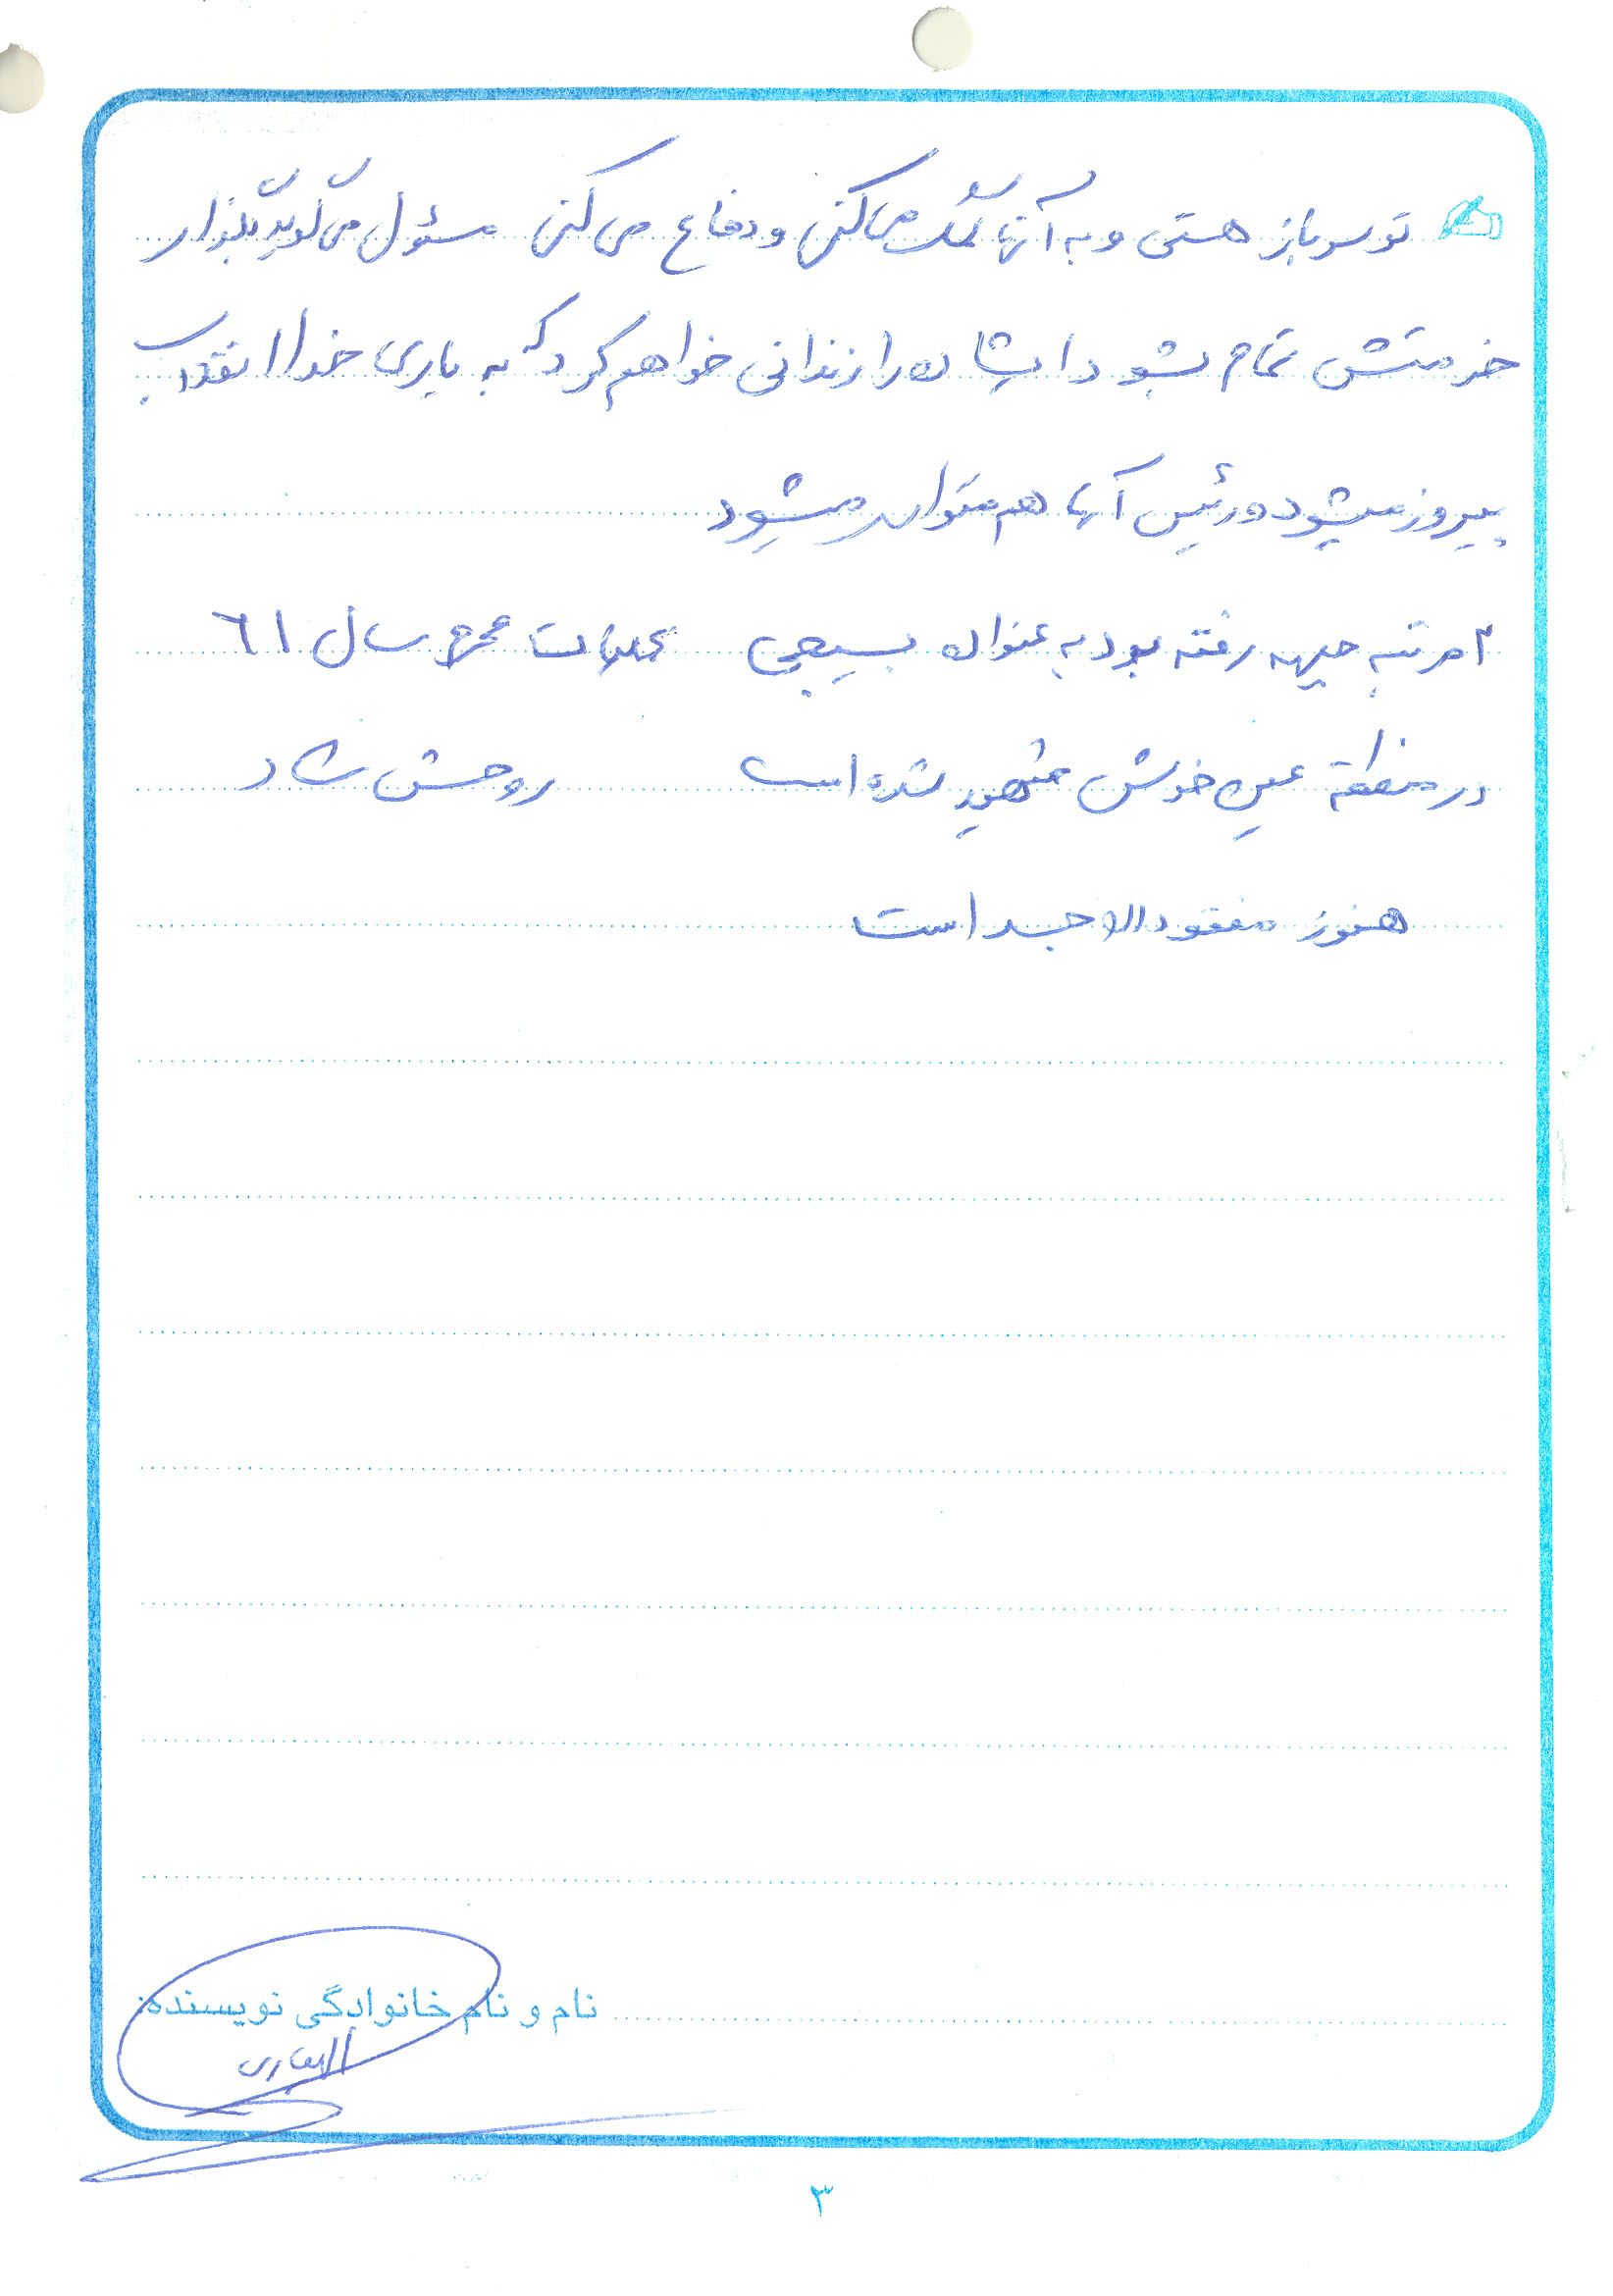 تو سرباز هستی و به آنها کمک می‌کنی و دفاع می‌کنی مسئول می‌گوید بگذار
خدمتش تمام بشود ایشان را زندانی خواهم کرد که به یاری خدا انقلاب
پیروز میشود و رئیس آنها هم متواری میشود
۲ مرتبه جبهه رفته بود به عنوان بسیجی عملیات محرم سال ٦١
در منطقه عین خوش شهید شده است روحش شاد
هنوز مفقود الاجسد است
نام و نام خانوادگی نویسنده:
۳